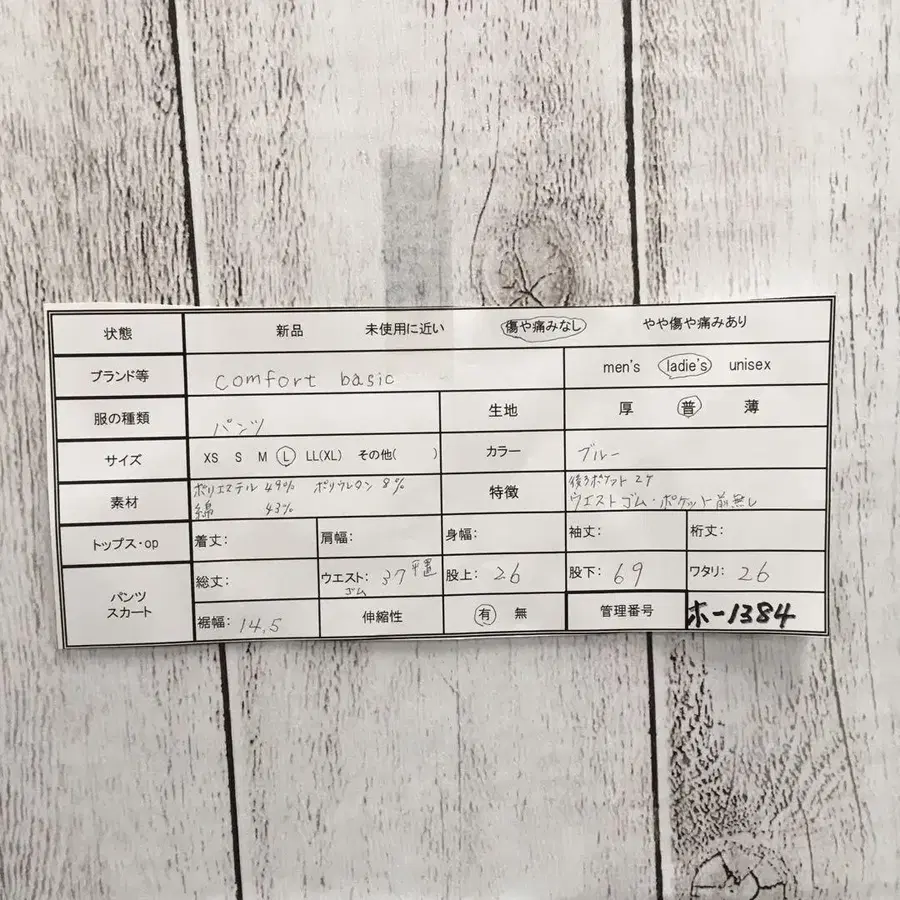 状態 新品 未使用に近い 傷や痛みなし やや傷や痛みあり
ブランド等 comfort basic men's ladie's unisex
服の種類 パンツ 生地 厚 普 薄
サイズ XS S M L LL(XL) その他( ) カラー ブルー
素材 ポリエステル 49% ポリウレタン 8%
綿 43%
特徴 後ろポケット 2ケ
ウエストゴム・ポケット前無し
トップス・op 着丈: 肩幅: 身幅: 袖丈: 裄丈:
パンツ
スカート
総丈: ウエスト: 37 平置 股上: 26 股下: 69 ワタリ: 26
ゴム
裾幅: 14.5 伸縮性 有 無 管理番号 ホ-1384